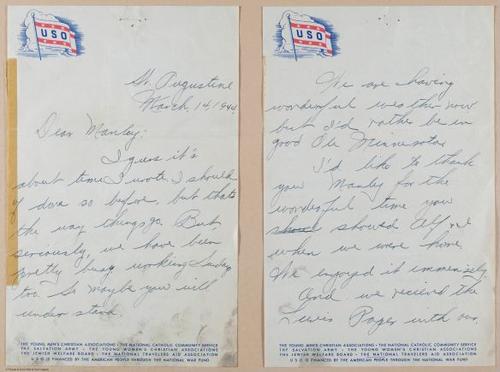 USO
St. Augustine
March, 14, 194
Dear Manley;
I guess it's
about time I wrote. I should
of done so before, but thats
the way things go. But,
seriously, we have been
pretty busy working Sundays
too. So maybe you will
under stand.
THE YOUNG MEN'S CHRISTIAN ASSOCIATIONS · THE NATIONAL CATHOLIC COMMUNITY SERVICE
THE SALVATION ARMY · THE YOUNG WOMEN'S CHRISTIAN ASSOCIATIONS
THE JEWISH WELFARE BOARD · THE NATIONAL TRAVELERS AID ASSOCIATION
USO IS FINANCED BY THE AMERICAN PEOPLE THROUGH THE NATIONAL WAR FUND
USO
We are having
wonderful weather now
but I'd rather be in
good Ole Minnesota.
I'd like to thank
you Manley for the
wonderful time you
showed Alf
when we were home.
We enjoyed it immensely.
And we recieved the
Lewis Pages with
THE YOUNG MEN'S CHRISTIAN ASSOCIATIONS · THE NATIONAL CATHOLIC COMMUNITY SERVICE
THE SALVATION ARMY · THE YOUNG WOMEN'S CHRISTIAN ASSOCIATIONS
THE JEWISH WELFARE BOARD · THE NATIONAL TRAVELERS AID ASSOCIATION
USO IS FINANCED BY THE AMERICAN PEOPLE THROUGH THE NATIONAL WAR FUND